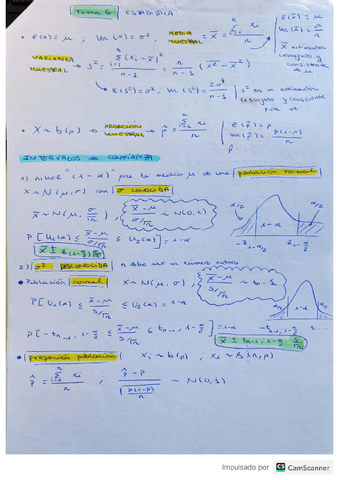 Tema 6 ESTADÍSTICA
• E(x) = μ ; Var(x) = σ² , MEDIA MUESTRAL → x̄ = Σ xi / n
E(x̄) = μ
Var(x̄) = σ²/n
x̄ estimador insesgado y consistente de μ
VARIANZA MUESTRAL → s² = Σ(xi - x̄)² / n-1 = n/n-1 (x̄² - x̄²)
• E(s²) = σ² , Var(s²) = 2σ⁴/n-1
s² es un estimador insesgado y consistente para σ²
• X ~ b(p) → PROPORCIÓN MUESTRAL → p̂ = Σ xi / n
E(p̂) = p
Var(p̂) = p(1-p)/n
INTERVALOS de CONFIANZA
1) nivel "(1-α)" para la media μ de una población normal
X ~ N(μ, σ) con σ CONOCIDA
x̄ ~ N(μ, σ/√n) , x̄-μ / σ/√n ~ N(0,1)
α/2 1-α α/2
P[U₁(α) ≤ x̄-μ / σ/√n ≤ U₂(α)] = 1-α
2) σ² DESCONOCIDA n debe ser un número
• Población normal X ~ N(μ, σ) , x̄-μ / s/√n ~ tn-1
P[U₁(α) ≤ x̄-μ / s/√n ≤ U₂(α)] = 1-α
P[-tn-1, 1-α/2 ≤ x̄-μ / s/√n ≤ tn-1, 1-α/2] = 1-α
x̄ ± tn-1, 1-α/2 s/√n
• proporción población xi ~ b(p)
p̂ = Σ xi / n , p̂-p / √p(1-p)/n ~ N(0,1)
Impulsado por CS CamScanner